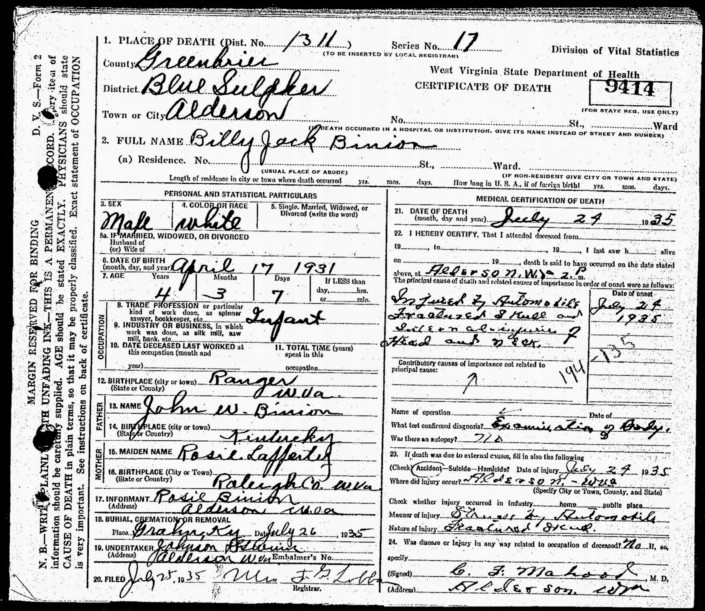 D. V. S.—Form 2
MARGIN RESERVED FOR BINDING
N. B.—WRITE PLAINLY WITH UNFADING INK—THIS IS A PERMANENT RECORD. Every item of
information should be carefully supplied. AGE should be stated EXACTLY. PHYSICIANS should state
CAUSE OF DEATH in plain terms, so that it may be properly classified. Exact statement of OCCUPATION
is very important. See instructions on back of certificate.
1. PLACE OF DEATH (Dist. No. 1311 Series No. 17
(TO BE INSERTED BY LOCAL REGISTRAR)
Division of Vital Statistics
County Greenbrier
West Virginia State Department of Health
District Blue Sulpher
CERTIFICATE OF DEATH
9414
(FOR STATE REG. USE ONLY)
Town or City Alderson No. St., Ward
(IF DEATH OCCURRED IN A HOSPITAL OR INSTITUTION, GIVE ITS NAME INSTEAD OF STREET AND NUMBER)
2. FULL NAME Billy Jack Binion
(a) Residence. No. St., Ward.
(USUAL PLACE OF ABODE) (IF NON-RESIDENT GIVE CITY OR TOWN AND STATE)
Length of residence in city or town where death occurred yrs. mos. days How long in U. S. A., if of foreign birth? yrs. mos. days
PERSONAL AND STATISTICAL PARTICULARS
3. SEX 4. COLOR OR RACE 5. Single, Married, Widowed, or
Divorced (write the word)
Male white
5a. IF MARRIED, WIDOWED, OR DIVORCED
Husband of
(or) Wife of
6. DATE OF BIRTH
(month, day, and year) April 17 1931
7. AGE Years Months Days If LESS than
4 3 7 day, hrs.
or min.
OCCUPATION
8. TRADE PROFESSION or particular
kind of work done, as spinner
sawyer, bookkeeper, etc. Infant
9. INDUSTRY OR BUSINESS, in which
work was done, as silk mill, saw
mill, bank, etc.
10. DATE DECEASED LAST WORKED at
this occupation (month and
year)
11. TOTAL TIME (years)
spent in this
occupation
12. BIRTHPLACE (city or town) Ranger
(State or County) W.Va
FATHER
13. NAME John W. Binion
14. BIRTHPLACE (city or town)
(State or County) Kintucky
MOTHER
15. MAIDEN NAME Rosie Lafferty
16. BIRTHPLACE (city or town)
(State or County) Raleigh Co W.Va
17. INFORMANT Rosie Binion
(Address) Alderson W.Va
18. BURIAL, CREMATION OR REMOVAL
Place Grahn, Ky Date July 26 1935
19. UNDERTAKER Johnson
(Address) Alderson W.Va Embalmer's No.
20. FILED July 25, 1935 Mrs
Registrar.
MEDICAL CERTIFICATION OF DEATH
21. DATE OF DEATH
(month, day, and year) July 24 1935
22. I HEREBY CERTIFY, That I attended deceased from
19 , to 19 , I last saw h alive
on 19 , death is said to have occurred on the date stated
above, at Alderson, W.Va 2. P.
The principal cause of death and related causes of importance in order of onset were as follows:
Date of onset
Injured by Automobile July 24
Fractured Skull and 1935
internal injuries of
Head and neck. 194 -135
Contributory causes of importance not related to
principal cause:
Name of operation Date of
What test confirmed diagnosis? Examination of Body.
Was there an autopsy? no
23. If death was due to external causes, fill in also the following
(Check) Accident—Suicide—Homicide? Date of injury July 24 1935
Where did injury occur? Alderson W.Va
(Specify City or Town, County, and State)
Check whether injury occurred in industry home public place.
Manner of injury Struck by Automobile
Nature of injury Fractured Skull
24. Was disease or injury in any way related to occupation of deceased? No If so,
specify
(Signed) C. F. Mahood M. D.
(Address) Alderson, W.Va